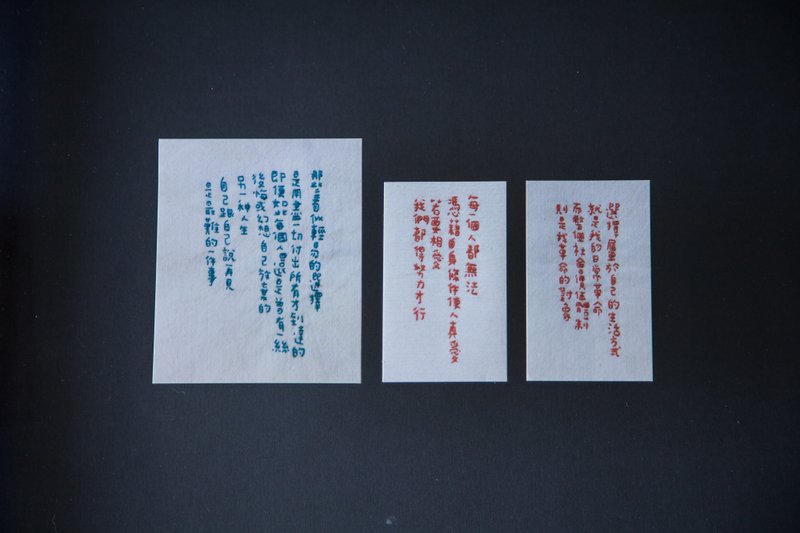 那些看似輕易的選擇
是用盡一切付出所有才到達的
即便如此每個人還是會有一絲
後悔或幻想自己放棄的
另一種人生
自己跟自己說再見
是最難的一件事
每一個人都無法
憑藉自身條件使人真愛
若要相愛
我們都得努力才行
選擇屬於自己的生活方式
就是我的日常革命
而整個社會價值體制
則是我革命的對象